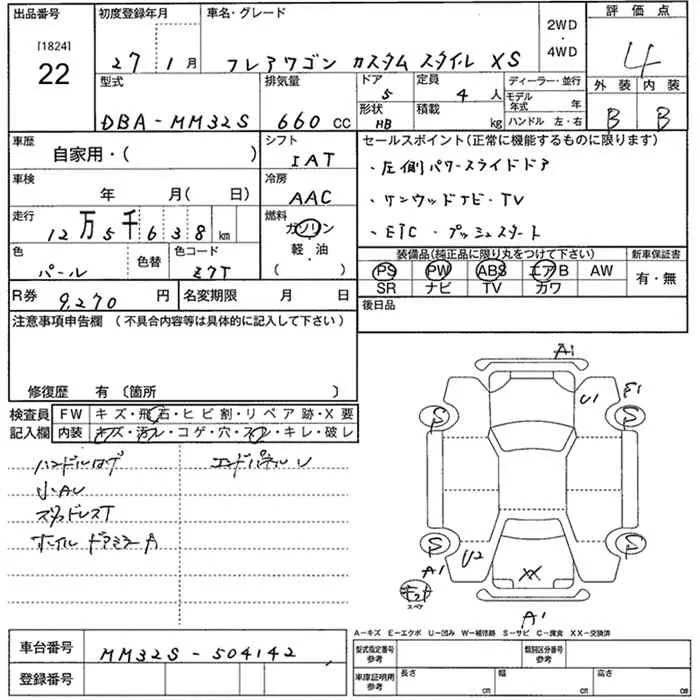 出品番号 初度登録年月 車名・グレード 2WD・4WD 評価点
[1824]
22
27年1月 フレアワゴン カスタムスタイル XS 4
型式 排気量 ドア 5 定員 4人 ディーラー・並行 外装 内装
DBA-MM32S 660cc 形状 HB 積載 kg モデル年式 年 B B
ハンドル 左・右
車歴 シフト セールスポイント(正常に機能するものに限ります)
自家用・( ) IAT ・左側パワースライドドア
車検 冷房
年 月(日) AAC ・ケンウッドナビ・TV
走行 燃料
12万5千638km ガソリン ・ETC・プッシュスタート
軽・油
( )
色 色替 色コード 装備品(純正品に限り丸をつけて下さい) 新車保証書
パール Z7T PS PW ABS エアB AW 有・無
SR ナビ TV カワ
R券 9,270円 名変期限 月 日 後日品
注意事項申告欄(不具合内容等は具体的に記入して下さい)
修復歴 有〔箇所 〕
検査員記入欄 FW キズ・飛石・ヒビ割・リペア跡・X要
内装 キズ・汚レ・コゲ・穴・スレ・キレ・破レ
ハンドルハゲ エンドパネルU
小AU
スタッドレスT
ホイル ドアミラーA
A1
U1 E1
S S
S S
A1 U2 XX
スペア
A1
A-キズ E-エクボ U-凹み W-補修跡 S-サビ C-腐食 XX-交換済
車台番号 MM32S-504142 型式指定番号 参考 類別区分番号 参考
登録番号 車庫証明用 参考 長さ cm 幅 cm 高さ cm